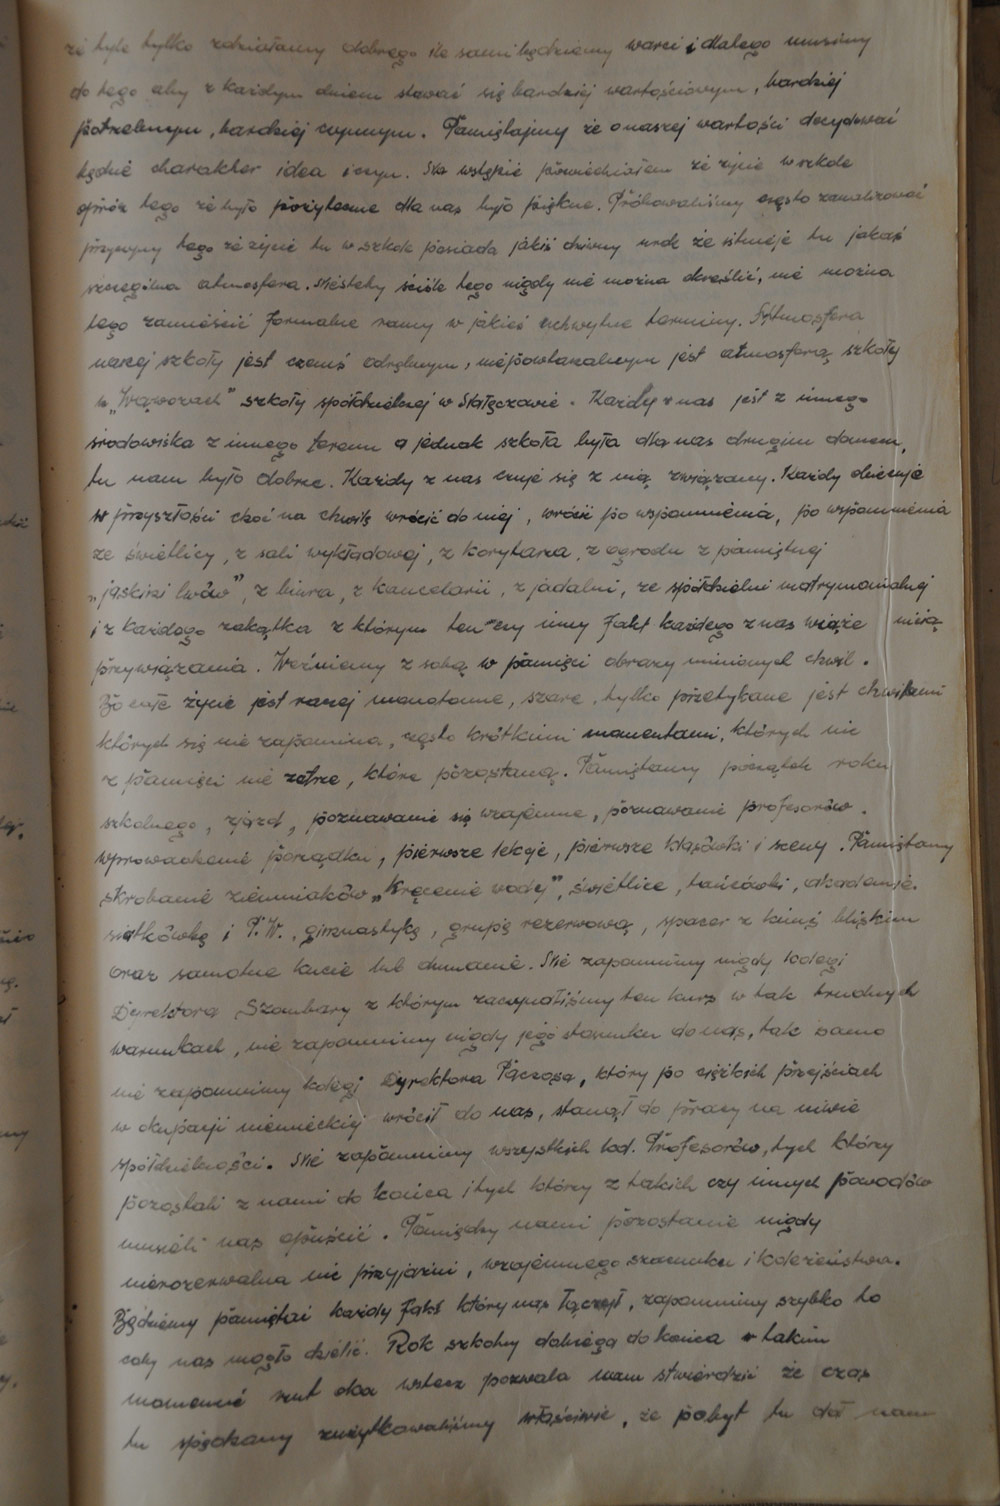 że tyle tylko zdziałamy dobrego ile sami będziemy warci i dlatego musimy
do tego aby z każdym dniem stawać się bardziej wartościowym, bardziej
potrzebnym, bardziej czynnym. Pamiętajmy że o naszej wartości decydować
będzie charakter idea i czyn. Na wstępie powiedziałem że życie w szkole
oprócz tego że było pożyteczne dla nas było piękne. Próbowaliśmy często zanalizować
przyczyny tego że życie tu w szkole posiada jakiś dziwny urok że istnieje tu jakaś
szczególna atmosfera. Niestety ściśle tego nigdy nie można określić, nie można
tego zamieścić formalne ramy w jakieś uchwytne terminy. Atmosfera
naszej szkoły jest czemś odrębnym, niepowtarzalnym jest atmosferą szkoły
w „Wąwozach" szkoły spółdzielczej w Nałęczowie. Każdy z nas jest z innego
środowiska z innego terenu a jednak szkoła była dla nas drugim domem,
tu nam było dobrze. Każdy z nas czuje się z nią związany. Każdy obiecuje
w przyszłości choć na chwilę wrócić do niej, wrócić po wspomnienia, po wspomnienia
ze świetlicy, z sali wykładowej, z korytarza, z ogrodu z pamiętnej
„jaskini lwów", z biura, z kancelarii, z jadalni, ze spółdzielni matrymonialnej
i z każdego zakątka z którym ten czy inny fakt każdego z nas wiąże nicią
przywiązania. Weźmiemy z sobą w pamięci obrazy minionych chwil.
Bo całe życie jest raczej monotonne, szare, tylko przetykane jest chwilami
których się nie zapomina, często krótkimi momentami, których nic
z pamięci nie zatrze, które pozostaną. Pamiętamy początek roku
szkolnego, zjazd, poznawanie się wzajemne, poznawanie profesorów.
wprowadzenie porządku, pierwsze lekcje, pierwsze klasówki i sceny. Pamiętamy
skrobanie ziemniaków „kręcenie wody", świetlice, tańcówki, akademie.
siatkówkę i P.W., gimnastykę, grupę rezerwową, spacer z kimś bliskim
oraz samotne kucie lub dumanie. Nie zapomnimy nigdy kolegi
Dyrektora Szambary z którym zaczynaliśmy ten kurs w tak trudnych
warunkach, nie zapomnimy nigdy jego stosunku do nas, tak samo
nie zapomnimy kolegi Dyrektora Pączosa, który po ciężkich przejściach
w okupacji niemieckiej wrócił do nas, stanął do pracy na niwie
spółdzielczości. Nie zapomnimy wszystkich kol. Profesorów, tych którzy
pozostali z nami do końca i tych którzy z takich czy innych powodów
musieli nas opuścić. Pomiędzy nami pozostanie nigdy
nierozerwalna nić przyjaźni, wzajemnego szacunku i koleżeństwa.
Będziemy pamiętać każdy fakt który nas łączył, zapomnimy szybko to
coby nas mogło dzielić. Rok szkolny dobiega do końca w takim
momencie rzut oka wstecz pozwala nam stwierdzić że czas
tu spędzony zużytkowaliśmy właściwie, że pobyt tu dał nam